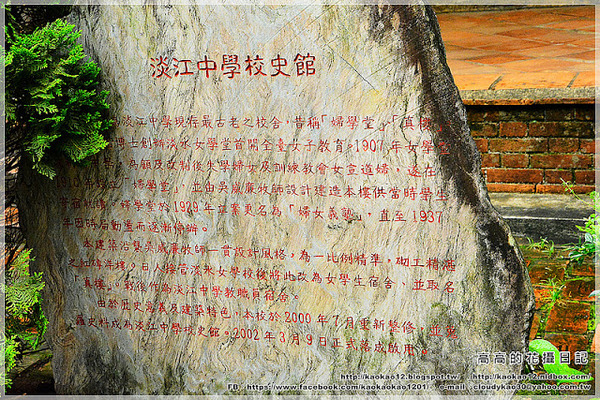 淡江中學校史館
為淡江中學現存最古老之校舍,昔稱「婦學堂」「真樓」
博士創辦淡水女學堂首開全臺女子教育。1907年女學
為顧及改制後失學婦女及訓練教會女宣道婦,遂在
「婦學堂」,並由吳威廉牧師設計建造本樓供當時學生
寄宿。婦學堂於1929年草案更名為「婦女義塾」,直至1937
年因時局動盪而逐漸停辦。
本建築沿襲吳威廉牧師一貫設計風格,為一比例精準,砌工精湛
之紅磚洋樓。日人接管淡水女學校後將此改為女學生宿舍、並取名
「真樓」。戰後作為淡江中學教職員宿舍。
由於歷史意義及建築特色,本校於2000年7月重新整修,並蒐
羅史料成為淡江中學校史館。2002年3月9日正式落成啟用。
高高的花攝日記
http://kaokao12.blogspot.tw/ http://kaokao12.midbox.com/
FB: https://www.facebook.com/kaokaokao1201 e-mail :cloudykao30@yahoo.com.tw